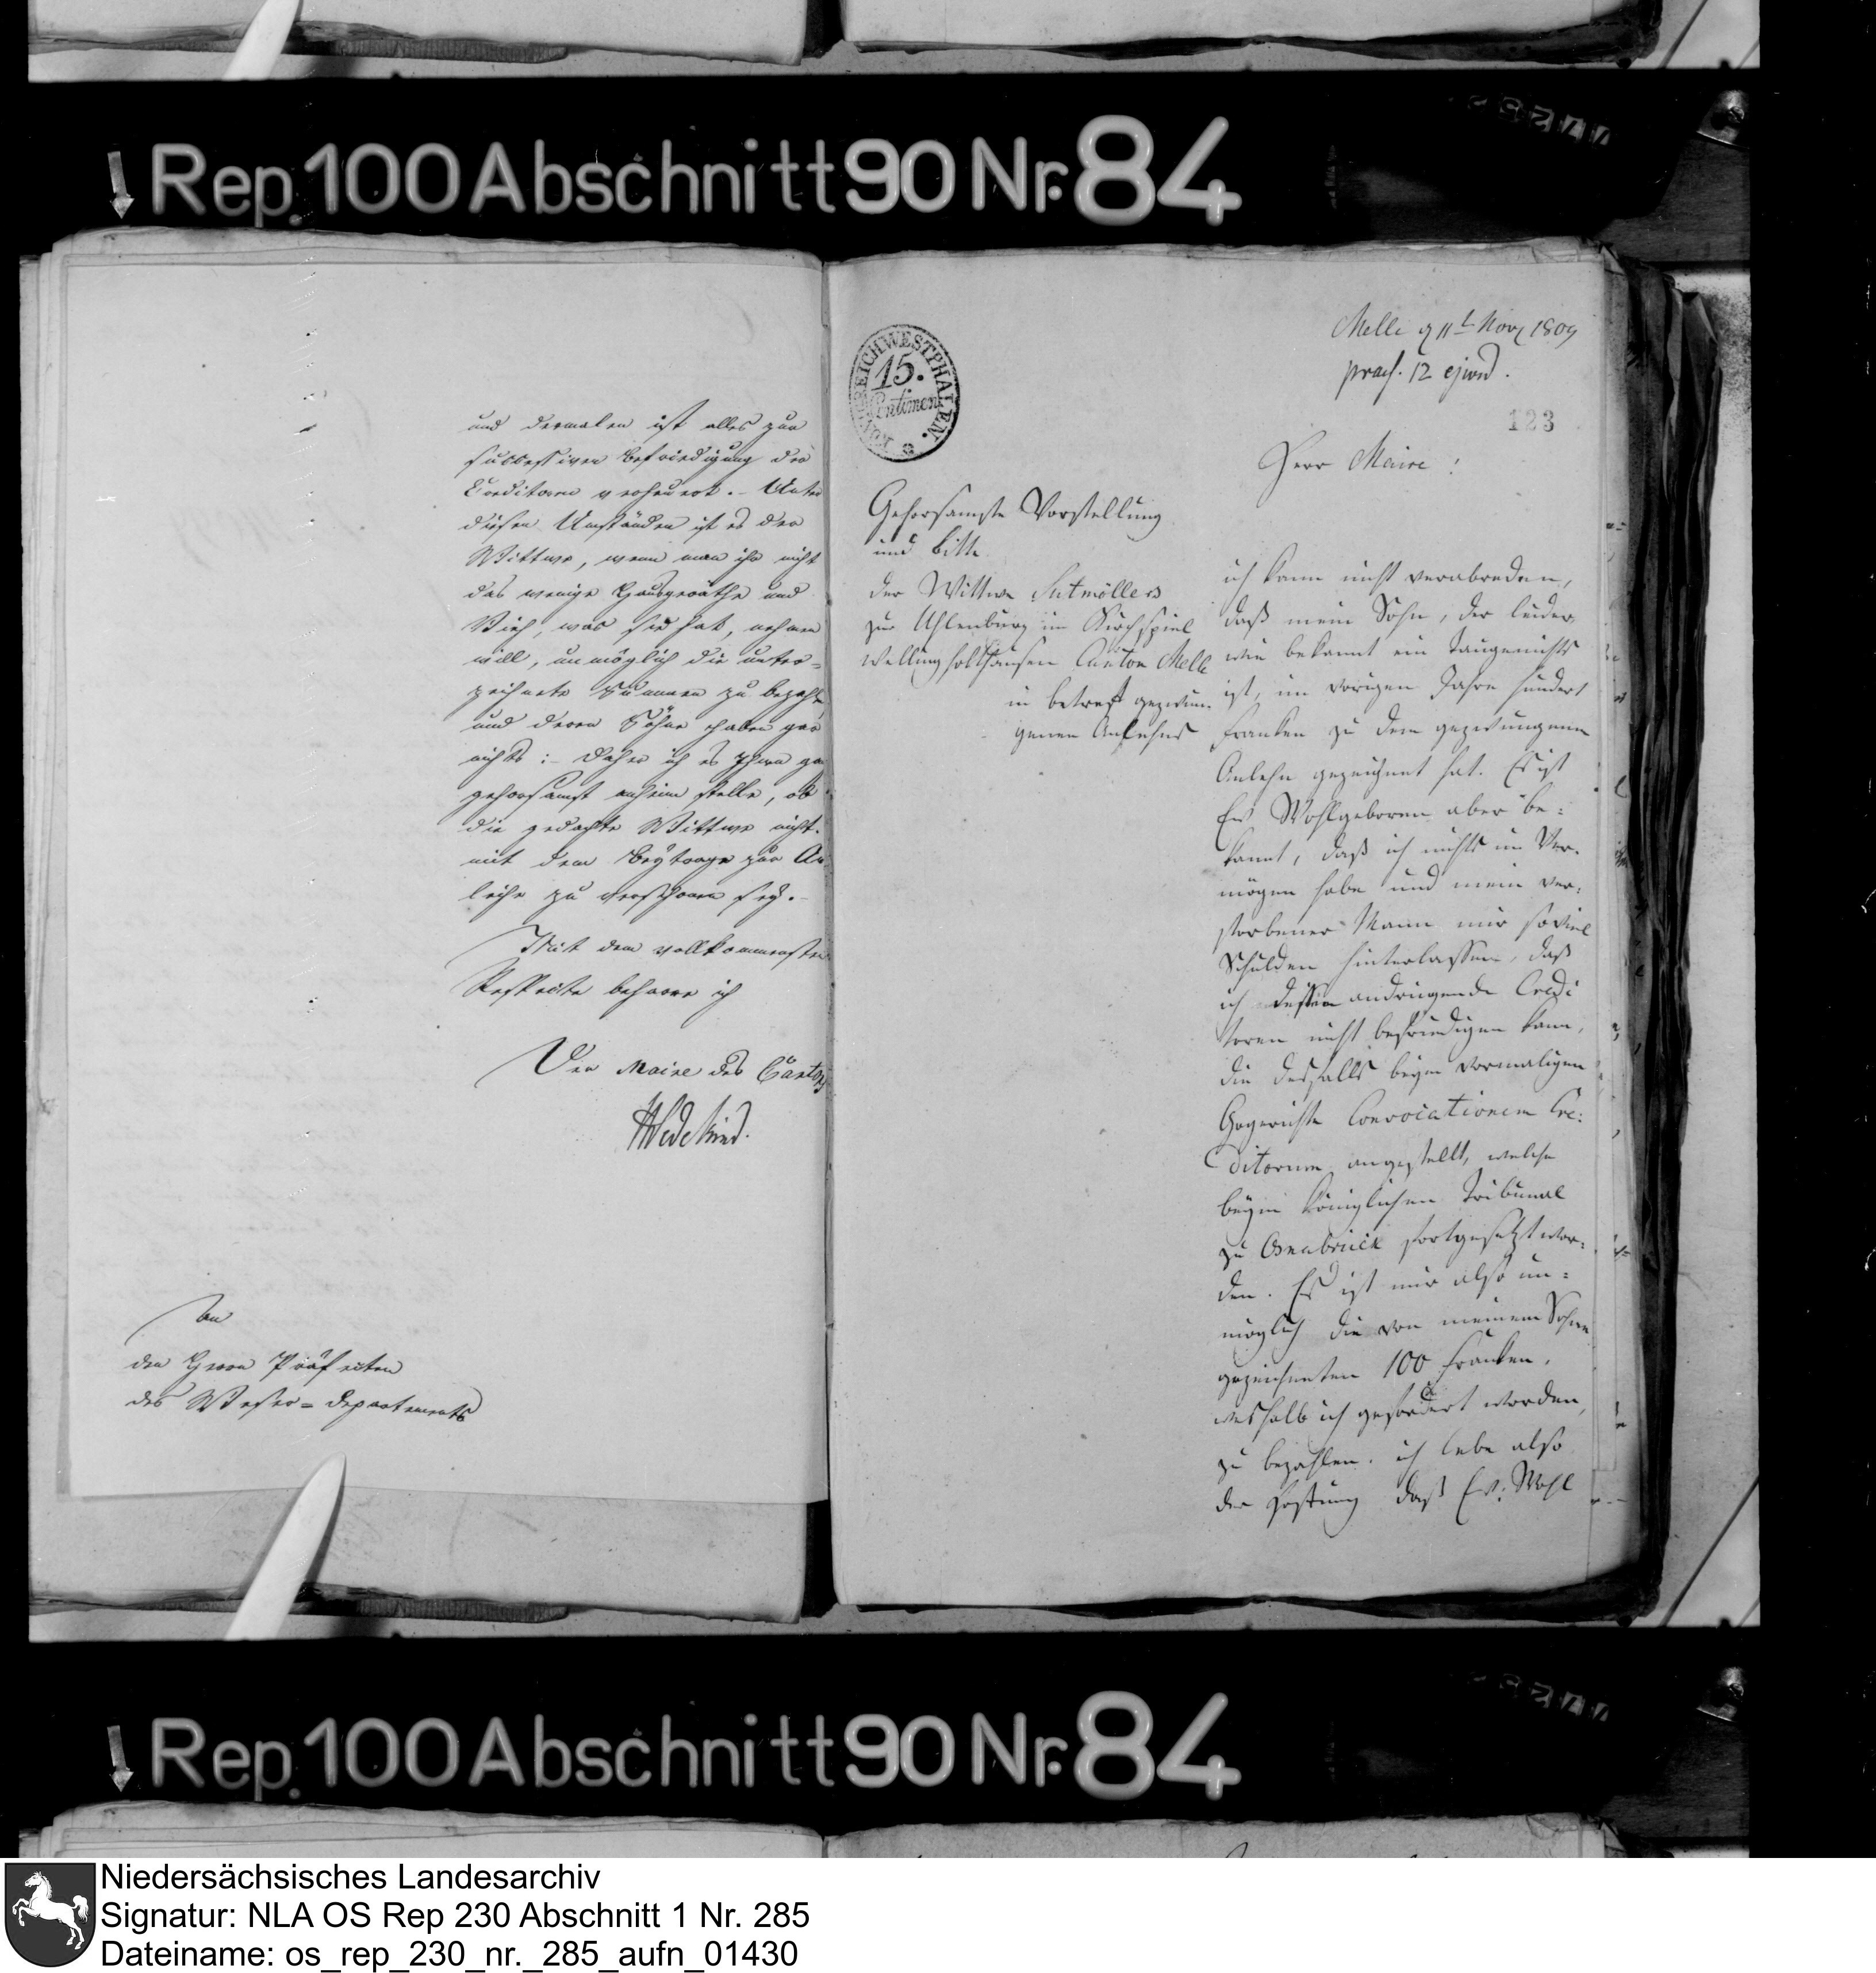 Rep. 100 Abschnitt 90 Nr. 84
und dermalen ist alles zur
successiven Befriedigung der
Creditoren verheuert. – Unter
diesen Umständen ist es der
Wittwe, wenn man ihr nicht
das wenige Hausgeräthe und
Vieh, was sie hat, nehmen
will, unmöglich die unter=
zeichnete Summen zu bezahlen
und deren Söhne haben gar
nichts: – Daher ich es Ihnen
gehorsamst anheim stelle, ob
die gedachte Wittwe nicht
mit dem Beytrage zur An
leihe zu verschonen sey. –
Mit dem vollkommensten
Respecte beharre ich
Der Maire des Cantons
Wedekind.
An
den Herrn Präfecten
des Weser=Departements
KÖNIGREICH WESTPHALEN.
15.
Centimen
Melle d 11t Nov 1809
praes. 12 ejusd.
123
Herr Maire!
Gehorsamste Vorstellung
und Bitte
der Wittwe Sutmöllers
zur Uhlenburg im Kirchspiel
Wellingholthausen Canton Melle
in betreff gezwun-
genen Anlehns
ich kann nicht verabreden,
daß mein Sohn, der leider,
wie bekannt ein Taugenichts
ist, im vorigen Jahre hundert
Franken zu dem gezwungenen
Anlehn gezeichnet hat. Es ist
Ew Wohlgeboren aber be=
kannt, daß ich nichts im Ver-
mögen habe und mein ver=
storbener Mann mir soviel
Schulden hinterlassen, daß
ich dessen andringende Credi
toren nicht befriedigen kann,
die desfalls beym vormaligen
Gogerichte Convocationem Cre=
ditorum angestellt, welche
beym Königlichen Tribunal
zu Osnabrück fortgesetzt wor=
den. Es ist mir also un=
möglich die von meinem Sohne
gezeichneten 100 Franken,
weshalb ich gefordert worden,
zu bezahlen. ich lebe also
der Hofnung daß Ew. Wohl
Rep. 100 Abschnitt 90 Nr. 84
Niedersächsisches Landesarchiv
Signatur: NLA OS Rep 230 Abschnitt 1 Nr. 285
Dateiname: os_rep_230_nr._285_aufn_01430